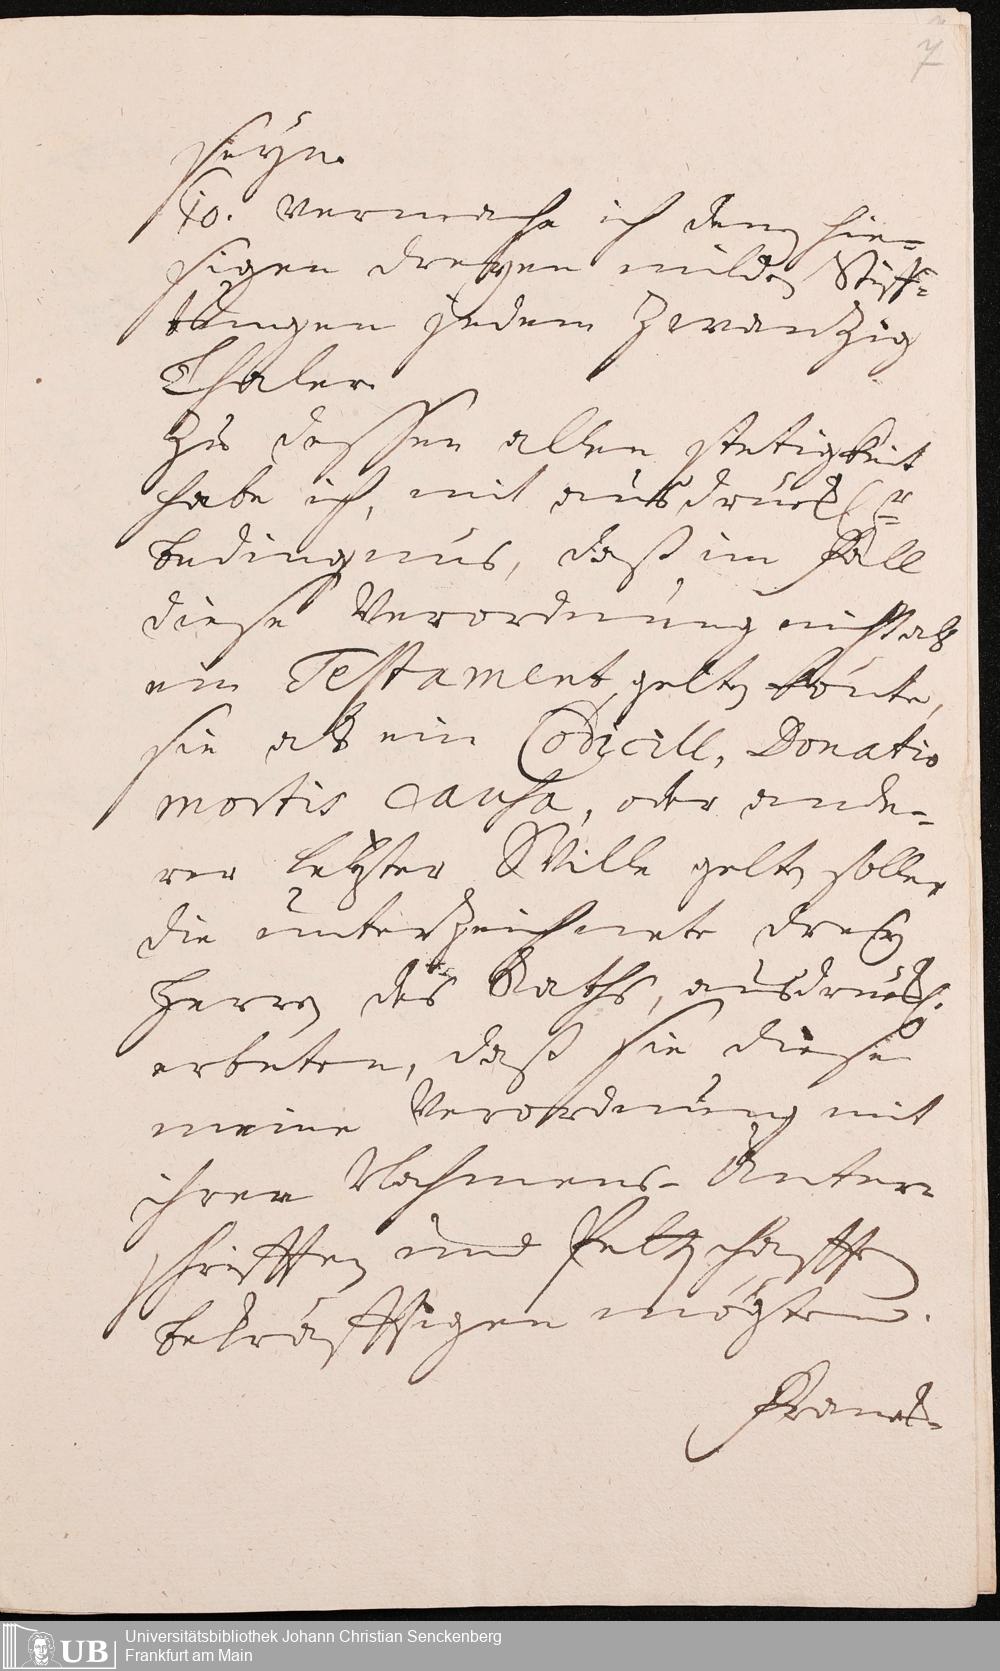 7
seyn.
10. vermache ich denen hie-
sigen dreyen milden Stiff-
tungen jedem Zwanzig
Thaler.
Zu dessen allen stetigkeit
habe ich, mit ausdrückl:r
bedingnus, daß im Fall
diese Verordnung nicht als
ein Testament gelten könte,
sie als ein Codicill, Donatio
mortis causa, oder ande-
rer letzter Wille gelten solle,
die unterzeichnete drey
Herren des Raths, ausdrückl.
erbeten, daß sie diese
meine Verordnung mit
ihren Nahmens-Unter-
schrifften und Pettschafft
bekräfftigen mögten.
Franck-
UB
Universitätsbibliothek Johann Christian Senckenberg
Frankfurt am Main